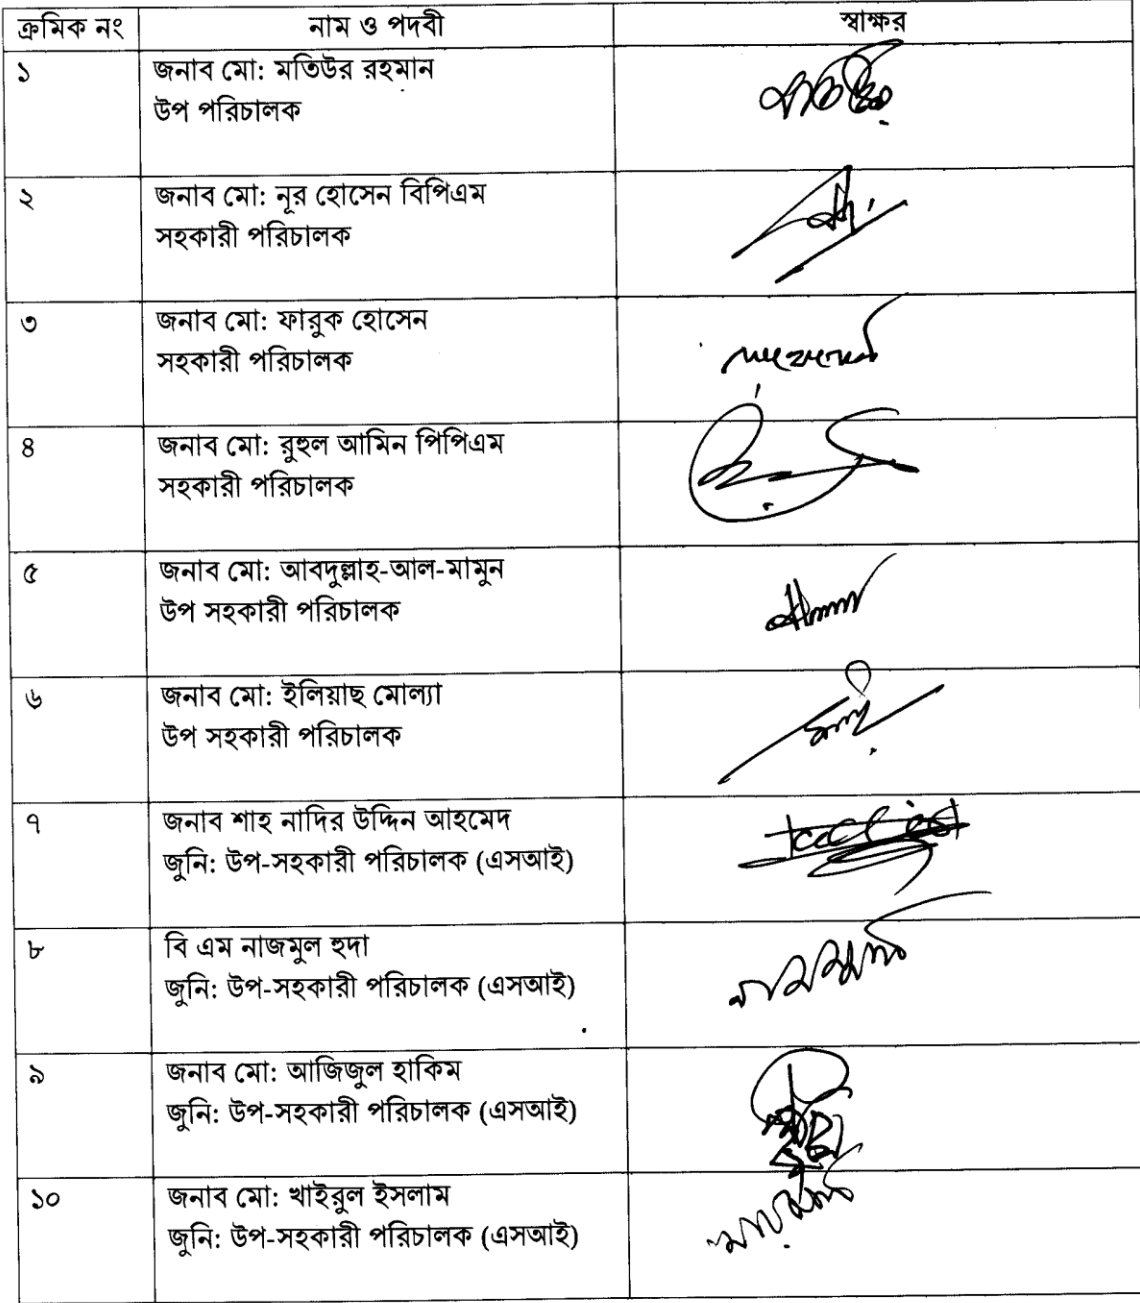 ক্রমিক নং নাম ও পদবী স্বাক্ষর
১ জনাব মো: মতিউর রহমান
উপ পরিচালক
২ জনাব মো: নূর হোসেন বিপিএম
সহকারী পরিচালক
৩ জনাব মো: ফারুক হোসেন
সহকারী পরিচালক
৪ জনাব মো: রুহুল আমিন পিপিএম
সহকারী পরিচালক
৫ জনাব মো: আবদুল্লাহ-আল-মামুন
উপ সহকারী পরিচালক
৬ জনাব মো: ইলিয়াছ মোল্যা
উপ সহকারী পরিচালক
৭ জনাব শাহ নাদির উদ্দিন আহমেদ
জুনি: উপ-সহকারী পরিচালক (এসআই)
৮ বি এম নাজমুল হুদা
জুনি: উপ-সহকারী পরিচালক (এসআই)
৯ জনাব মো: আজিজুল হাকিম
জুনি: উপ-সহকারী পরিচালক (এসআই)
১০ জনাব মো: খাইরুল ইসলাম
জুনি: উপ-সহকারী পরিচালক (এসআই)